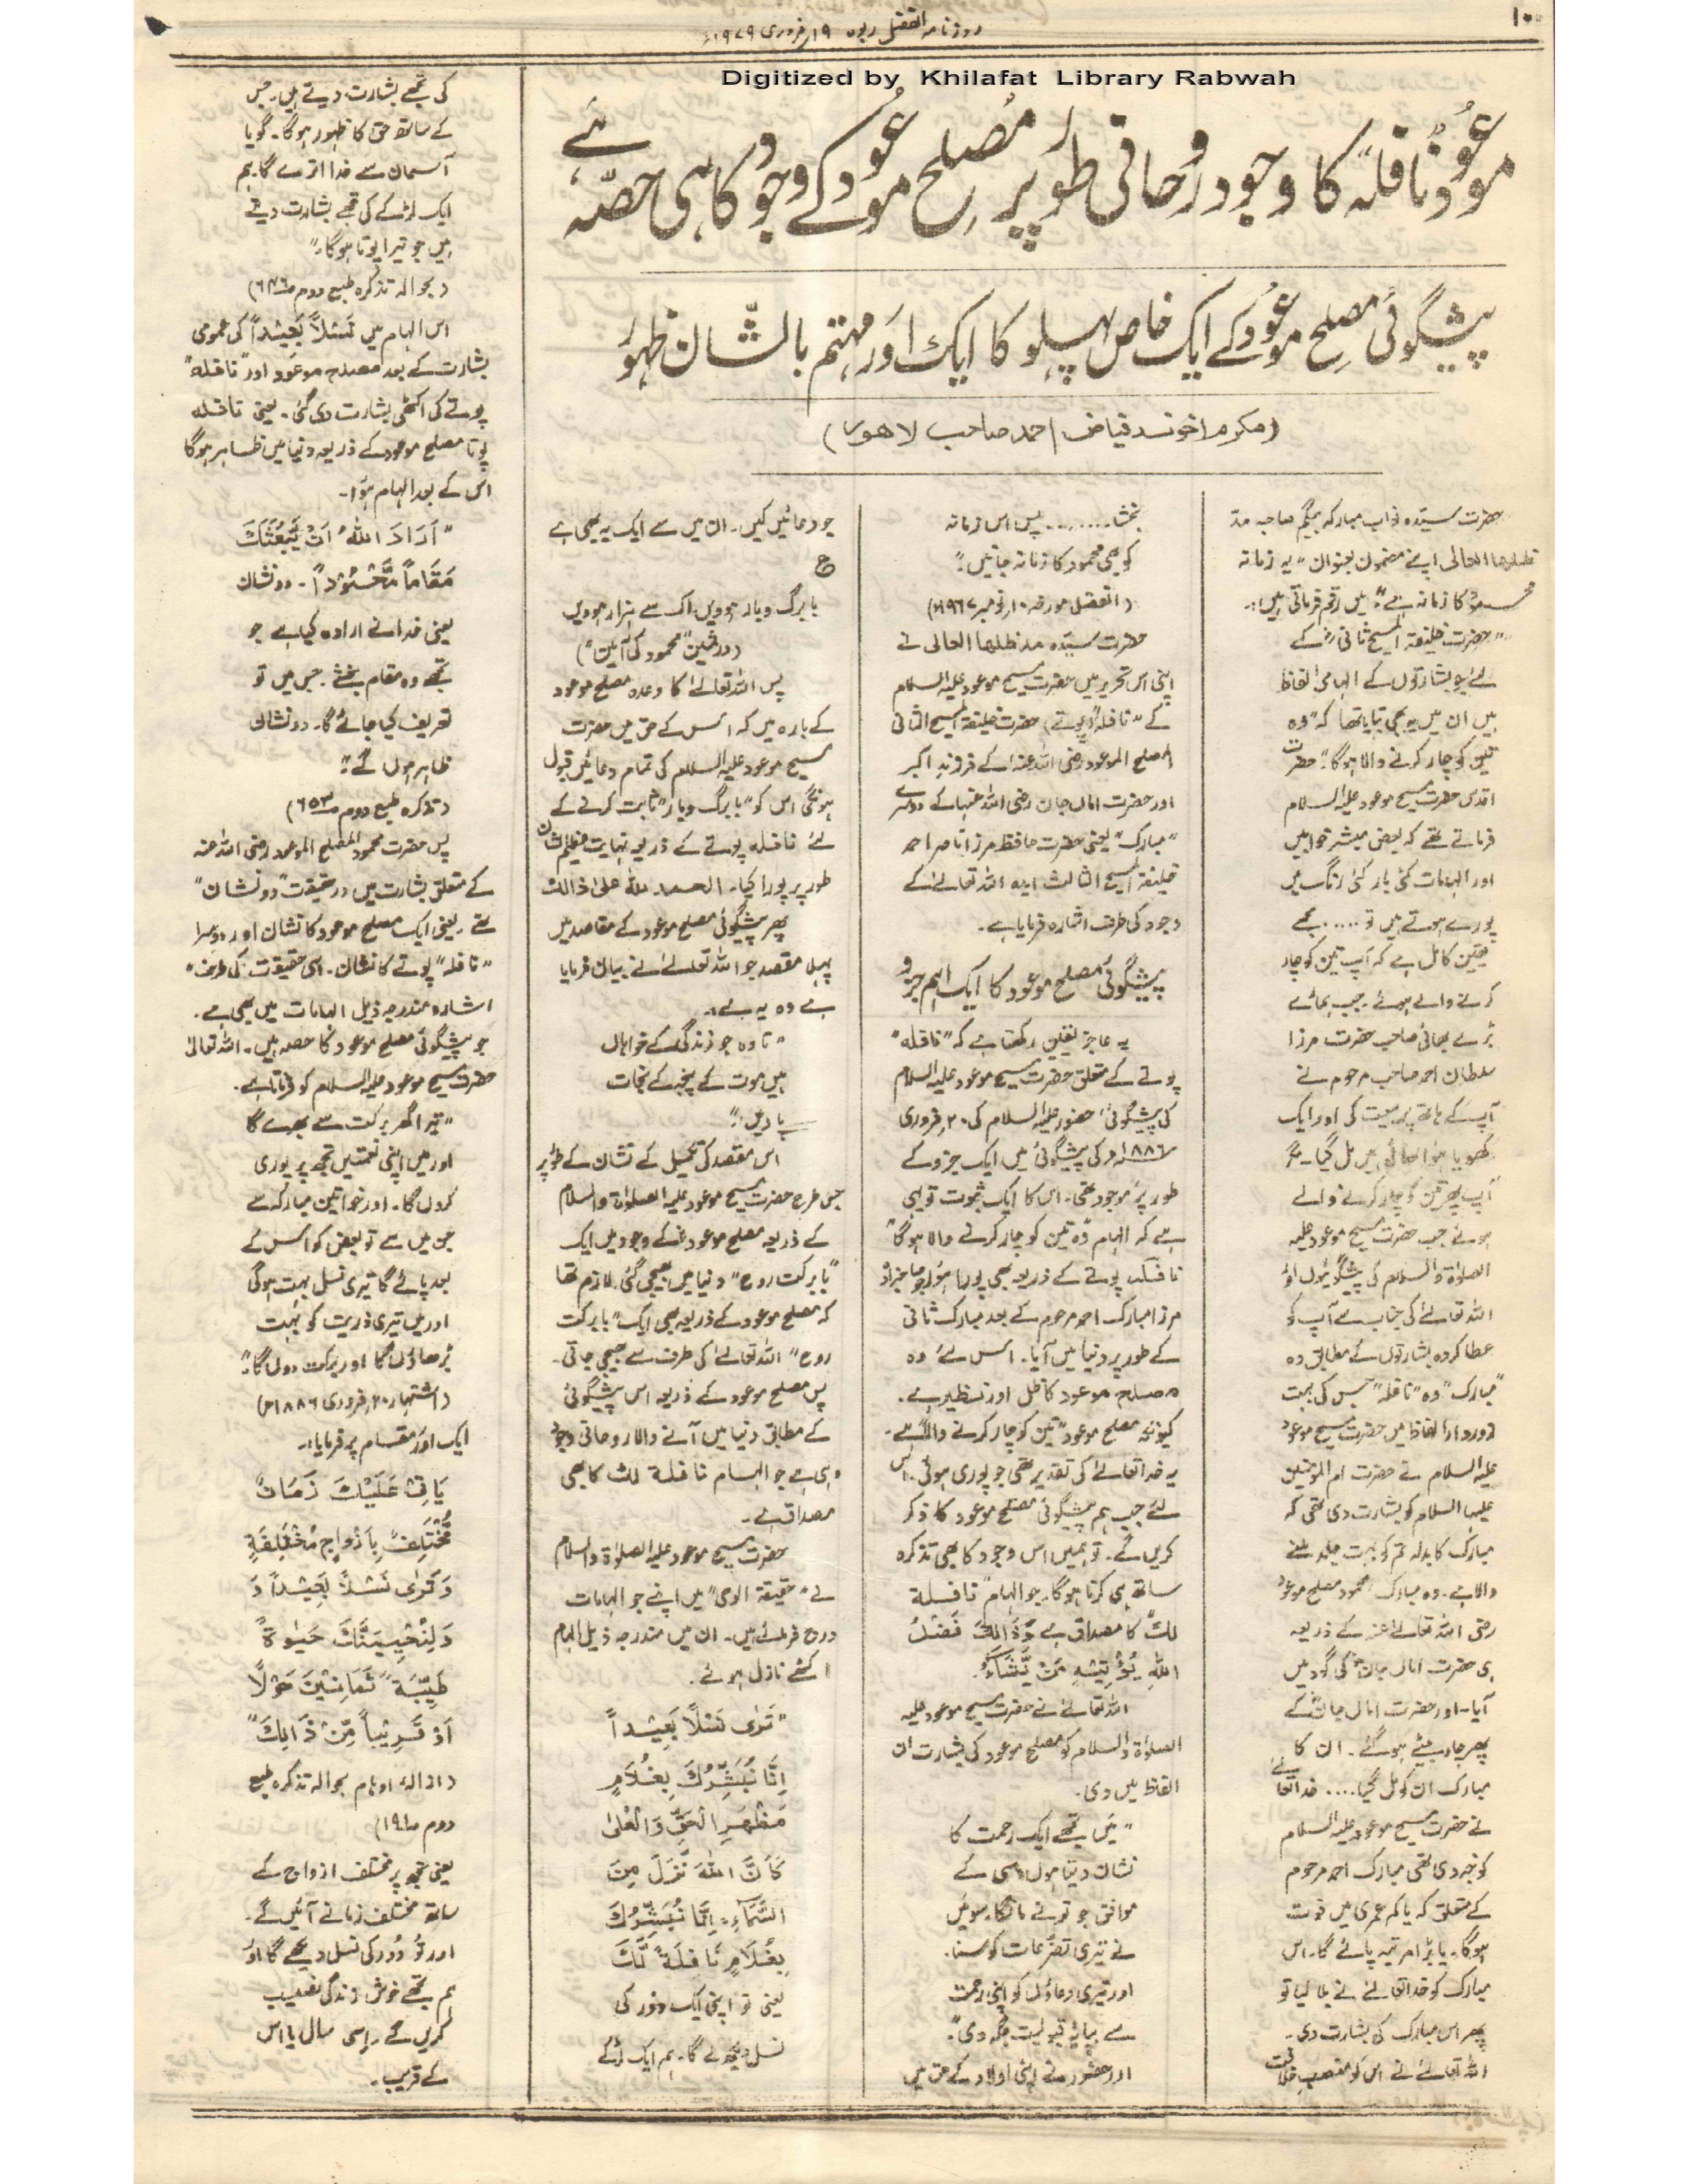 ۱۰
روزنامہ الفضل ربوہ ۱۹ فروری ۱۹۷۹ء
Digitized by Khilafat Library Rabwah
موعود نافلہ کا وجود روحانی طور پر مصلح موعود کے وجود کا ہی حصّہ ہے
پیشگوئی مصلح موعود کے ایک خاص پہلو کا ایک اور مہتم بالشّان ظہور
(مکرم اخوند فیاض احمد صاحب لاھور)
حضرت سیّدہ نواب مبارکہ بیگم صاحبہ مد
ظلہا العالی اپنے مضمون بعنوان "یہ زمانہ
محمود کا زمانہ ہے" میں رقم فرماتی ہیں:۔
"حضرت خلیفۃ المسیح ثانی رض کے
لئے جو بشارتوں کے الہامی الفاظ
ہیں ان میں یہ بھی بتایا تھا کہ "وہ
تین کو چار کرنے والا ہوگا" حضرت
اقدس حضرت مسیح موعود علیہ السلام
فرماتے تھے کہ بعض مبشر خوابیں
اور الہامات کئی بار کئی رنگ میں
پورے ہوتے ہیں تو ..... مجھے
یقین کامل ہے کہ آپ تین کو چار
کرنے والے ہوئے۔ جب ہمارے
بڑے بھائی صاحب حضرت مرزا
سلطان احمد صاحب مرحوم نے
آپ کے ہاتھ پر بیعت کی اور ایک
کھویا ہوا بھائی ہمیں مل گیا۔ مگر
آپ پھر تین کو چار کرنے والے
ہوئے جب حضرت مسیح موعود علیہ
الصلوٰۃ والسلام کی پیشگوئیوں اور
اللہ تعالےٰ کی جناب سے آپ کو
عطا کردہ بشارتوں کے مطابق وہ
"مبارک" وہ "نافلہ" جس کی بہت
زوردار الفاظ میں حضرت مسیح موعود
علیہ السلام نے حضرت ام المومنین
علیہا السلام کو بشارت دی تھی کہ
مبارک کا بدلہ تم کو بہت جلد ملنے
والا ہے۔ وہ مبارک محمود مصلح موعود
رضی اللہ تعالےٰ عنہ کے ذریعہ
ہی حضرت اماں جان کی گود میں
آیا۔ اور حضرت اماں جان کے
پھر چار بیٹے ہو گئے۔ ان کا
مبارک ان کو مل گیا .... خدا تعالےٰ
نے حضرت مسیح موعود علیہ السلام
کو خبر دی تھی مبارک احمد مرحوم
کے متعلق کہ یا کم عمری میں فوت
ہوگا۔ یا بڑا مرتبہ پائے گا۔ اس
مبارک کو خدا تعالےٰ نے بلا لیا تو
پھر اس مبارک کی بشارت دی۔
اللہ تعالےٰ نے اس کو منصب خلافت
بخشا ........ پس اس زمانہ
کو بھی محمود کا زمانہ جانیں"
(الفضل مورخہ ۱۰ نومبر ۱۹۶۷ء)
حضرت سیّدہ مد ظلہا العالی نے
اپنی اس تحریر میں حضرت مسیح موعود علیہ السلام
کے "نافلہ" (پوتے) حضرت خلیفۃ المسیح الثانی
المصلح الموعود رضی اللہ عنہ کے فرزند اکبر
اور حضرت اماں جان رضی اللہ عنہا کے دوسرے
"مبارک" یعنی حضرت حافظ مرزا ناصر احمد
خلیفۃ المسیح الثالث ایدہ اللہ تعالےٰ کے
وجود کی طرف اشارہ فرمایا ہے۔
پیشگوئی مصلح موعود کا ایک اہم جزو
یہ عاجز یقین رکھتا ہے کہ "نافلہ"
پوتے کے متعلق حضرت مسیح موعود علیہ السلام
کی پیشگوئی حضور علیہ السلام کی ۲۰ فروری
۱۸۸۶ء کی پیشگوئی میں ایک جزو کے
طور پر موجود تھی۔ اس کا ایک ثبوت تو یہی
ہے کہ الہام "وہ تین کو چار کرنے والا ہوگا"
نافلہ پوتے کے ذریعہ بھی پورا ہوا جو صاحبزادہ
مرزا مبارک احمد مرحوم کے بعد مبارک ثانی
کے طور پر دنیا میں آیا۔ اس لئے وہ
مصلح موعود کا ظل اور نظیر ہے۔
کیونکہ مصلح موعود "تین کو چار کرنے والا" ہے۔
یہ خدا تعالےٰ کی تقدیر تھی جو پوری ہوئی۔ اس
لئے جب ہم پیشگوئی مصلح موعود کا ذکر
کریں گے۔ تو ہمیں اس وجود کا بھی تذکرہ
ساتھ ہی کرنا ہوگا۔ جو الہام "نافلۃ
لک" کا مصداق ہے وَذَالِكَ فَضْلُ
اللّٰهِ يُؤْتِيْهِ مَنْ يَّشَآءُ۔
اللہ تعالےٰ نے حضرت مسیح موعود علیہ
الصلوٰۃ والسلام کو مصلح موعود کی بشارت ان
الفاظ میں دی۔
"میں تجھے ایک رحمت کا
نشان دیتا ہوں اسی کے
موافق جو تو نے مانگا۔ سو میں
نے تیری تضرعات کو سنا۔
اور تیری دعاؤں کو اپنی رحمت
سے بپایۂ قبولیت جگہ دی"۔
اور حضور نے اپنی اولاد کے حق میں
جو دعائیں کیں۔ ان میں سے ایک یہ بھی ہے
ع
با برگ و بار ہوویں اک سے ہزار ہوویں
(درثمین "محمود کی آمین")
پس اللہ تعالےٰ کا وعدہ مصلح موعود
کے بارہ میں کہ اس کے حق میں حضرت
مسیح موعود علیہ السلام کی تمام دعائیں قبول
ہونگی اس کو "با برگ و بار" ثابت کرنے کے
لئے نافلہ پوتے کے ذریعہ نہایت عظیم الشان
طور پر پورا کیا۔ الحمد للہ علیٰ ذالک
پھر پیشگوئی مصلح موعود کے مقاصد میں
پہلا مقصد جو اللہ تعالےٰ نے بیان فرمایا
ہے وہ یہ ہے۔
"تا وہ جو زندگی کے خواہاں
ہیں موت کے پنجہ سے نجات
پاویں"
اس مقصد کی تکمیل کے نشان کے طور پر
جس طرح حضرت مسیح موعود علیہ الصلوٰۃ والسلام
کے ذریعہ مصلح موعود رض کے وجود میں ایک
"بابرکت روح" دنیا میں بھیجی گئی۔ لازم تھا
کہ مصلح موعود کے ذریعہ بھی ایک "بابرکت
روح" اللہ تعالےٰ کی طرف سے بھیجی جاتی۔
پس مصلح موعود کے ذریعہ اس پیشگوئی
کے مطابق دنیا میں آنے والا روحانی وجود
وہی ہے جو الہام نافلۃ لک کا بھی
مصداق ہے۔
حضرت مسیح موعود علیہ الصلوٰۃ والسلام
نے "حقیقۃ الوحی" میں اپنے جو الہامات
درج فرمائے ہیں۔ ان میں مندرجہ ذیل الہام
اکٹھے نازل ہوئے۔
"تَرٰى نَسْلًا بَعِيْداً
اِنَّا نُبَشِّرُكَ بِغُلَامٍ
مَظْهَرِ الْحَقِّ وَالْعُلٰى
كَاَنَّ اللّٰهَ نَزَلَ مِنَ
السَّمَآءِ۔ اِنَّا نُبَشِّرُكَ
بِغُلَامٍ نَافِلَةً لَّكَ
یعنی تو اپنی ایک دور کی
نسل دیکھ لے گا۔ ہم ایک لڑکے
کی تجھے بشارت دیتے ہیں۔ جس
کے ساتھ حق کا ظہور ہوگا۔ گویا
آسمان سے خدا اترے گا۔ ہم
ایک لڑکے کی تجھے بشارت دیتے
ہیں جو تیرا پوتا ہوگا۔"
(بحوالہ تذکرہ طبع دوم ص۶۴۶)
اس الہام میں نَسْلاً بَعِيْداً کی عمومی
بشارت کے بعد مصلح موعود اور "نافلہ"
پوتے کی اکٹھی بشارت دی گئی۔ یعنی نافلہ
پوتا مصلح موعود کے ذریعہ دنیا میں ظاہر ہوگا
اس کے بعد الہام ہوا۔
"اَرَادَ اللّٰهُ اَنْ يَّبْعَثَكَ
مَقَاماً مَّحْمُوْداً۔ دو نشان
یعنی خدا نے ارادہ کیا ہے جو
تجھے وہ مقام بخشے۔ جس میں تو
تعریف کیا جائے گا۔ دو نشان
ظاہر ہوں گے"
(تذکرہ طبع دوم ص۶۵۳)
پس حضرت محمود المصلح الموعود رضی اللہ عنہ
کے متعلق بشارت میں درحقیقت "دو نشان"
تھے۔ یعنی ایک مصلح موعود کا نشان اور دوسرا
"نافلہ" پوتے کا نشان۔ اسی حقیقت کی طرف
اشارہ مندرجہ ذیل الہامات میں بھی ہے۔
جو پیشگوئی مصلح موعود کا حصہ ہیں۔ اللہ تعالیٰ
حضرت مسیح موعود علیہ السلام کو فرماتا ہے۔
"تیرا گھر برکت سے بھرے گا
اور میں اپنی نعمتیں تجھ پر پوری
کروں گا۔ اور خواتین مبارکہ سے
جن میں سے تو بعض کو اس کے
بعد پائے گا تیری نسل بہت ہوگی
اور میں تیری ذریت کو بہت
بڑھاؤں گا اور برکت دوں گا"
(اشتہار ۲۰ فروری ۱۸۸۶ء)
ایک اور مقام پر فرمایا:۔
يَاْتِيْ عَلَيْكَ زَمَانٌ
مُّخْتَلِفٌ بِاَزْوَاجٍ مُّخْتَلِفَةٍ
وَ تَرٰى نَسْلًا بَعِيْداً وَ
وَلِنُحْيِيَنَّكَ حَيٰوةً
طَيِّبَةً ثَمَانِيْنَ حَوْلًا
اَوْ قَرِيْباً مِّنْ ذَالِكَ"
(ازالہ اوہام بحوالہ تذکرہ طبع
دوم
یعنی تجھ پر مختلف ازواج کے
ساتھ مختلف زمانے آئیں گے۔
اور تُو دُور کی نسل دیکھے گا اور
ہم تجھے خوش زندگی نصیب
کریں گے۔ اسی سال یا اس
کے قریب۔